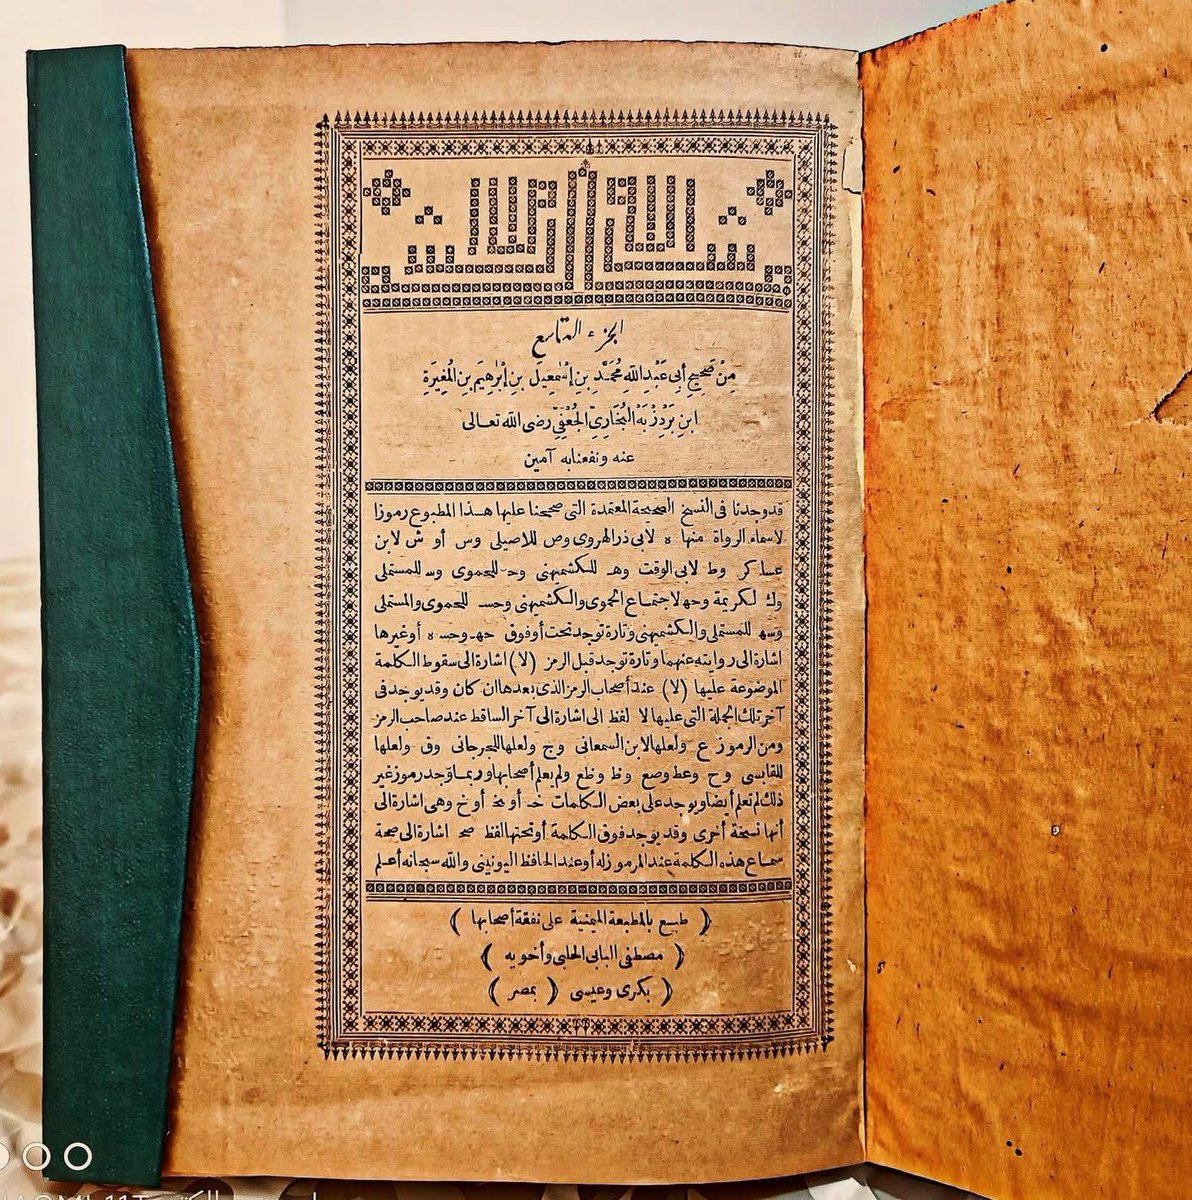 بسم الله الرحمن الرحيم
الجزء التاسع
مِنْ صَحِيحِ أَبِي عَبْدِ اللهِ مُحَمَّدِ بْنِ إِسْمٰعِيلَ بْنِ إِبْرٰهِيمَ بْنِ الْمُغِيرَةِ
ابْنِ بَرْدِزْبَهْ الْبُخَارِيِّ الْجُعْفِيِّ رضى الله تعالى
عنه ونفعنابه آمين
قدوجدنا فى النسخ الصحيحة المعتمدة التى صححنا عليها هذا المطبوع رموزا
لاسماء الرواة منها ه لابى ذرالهروى وص للاصيلى وس أو ش لابن
عساكر وط لابى الوقت وهـ للكشميهنى وحـ للحموى وسـ للمستملى
وك لكريمة وحهـ لاجتماع الحموى والكشميهنى وحسـ للحموى والمستملى
وسهـ للمستملى والكشميهنى وتارة توجد تحت أوفوق حهـ وحسـ ه أوغيرها
اشارة الى روايته عنهما وتارة توجد قبل الرمز (لا) اشارة الى سقوط الكلمة
الموضوعة عليها (لا) عند أصحاب الرمز الذى بعدها ان كان وقد يوجد فى
آخر تلك الجملة التى عليها لا لفظ الى اشارة الى آخر الساقط عند صاحب الرمز
ومن الرموز ع ولعلها لابن السمعانى وج ولعلها للجرجانى وق ولعلها
للقابسى وح وعط وصع وظ وظع ولم يعلم أصحابها وربما وجد رموز غير
ذلك لم تعلم أيضا ويوجد على بعض الكلمات خـ أو نخ أوخ وهى اشارة الى
أنها نسخة أخرى وقد يوجد فوق الكلمة أوتحتها لفظ صح اشارة الى صحة
سماع هذه الكلمة عند المرموز له أوعند الحافظ اليونينى والله سبحانه أعلم
(طبع بالمطبعة الميمنية على نفقة أصحابها)
(مصطفى البابى الحلبى وأخويه)
(بكرى وعيسى) (بمصر)